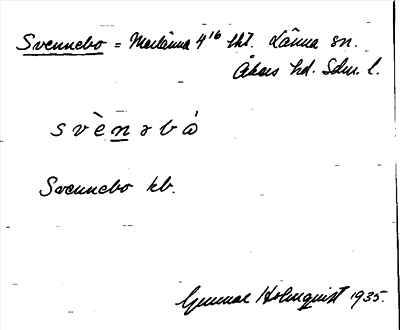 Svennebo = Marlänna 4¹⁶ skt. Länna sn.
Åkers hd. Sdm. l.
svènəbò
Svennebo kb.
Gunnar Holmquist 1935.